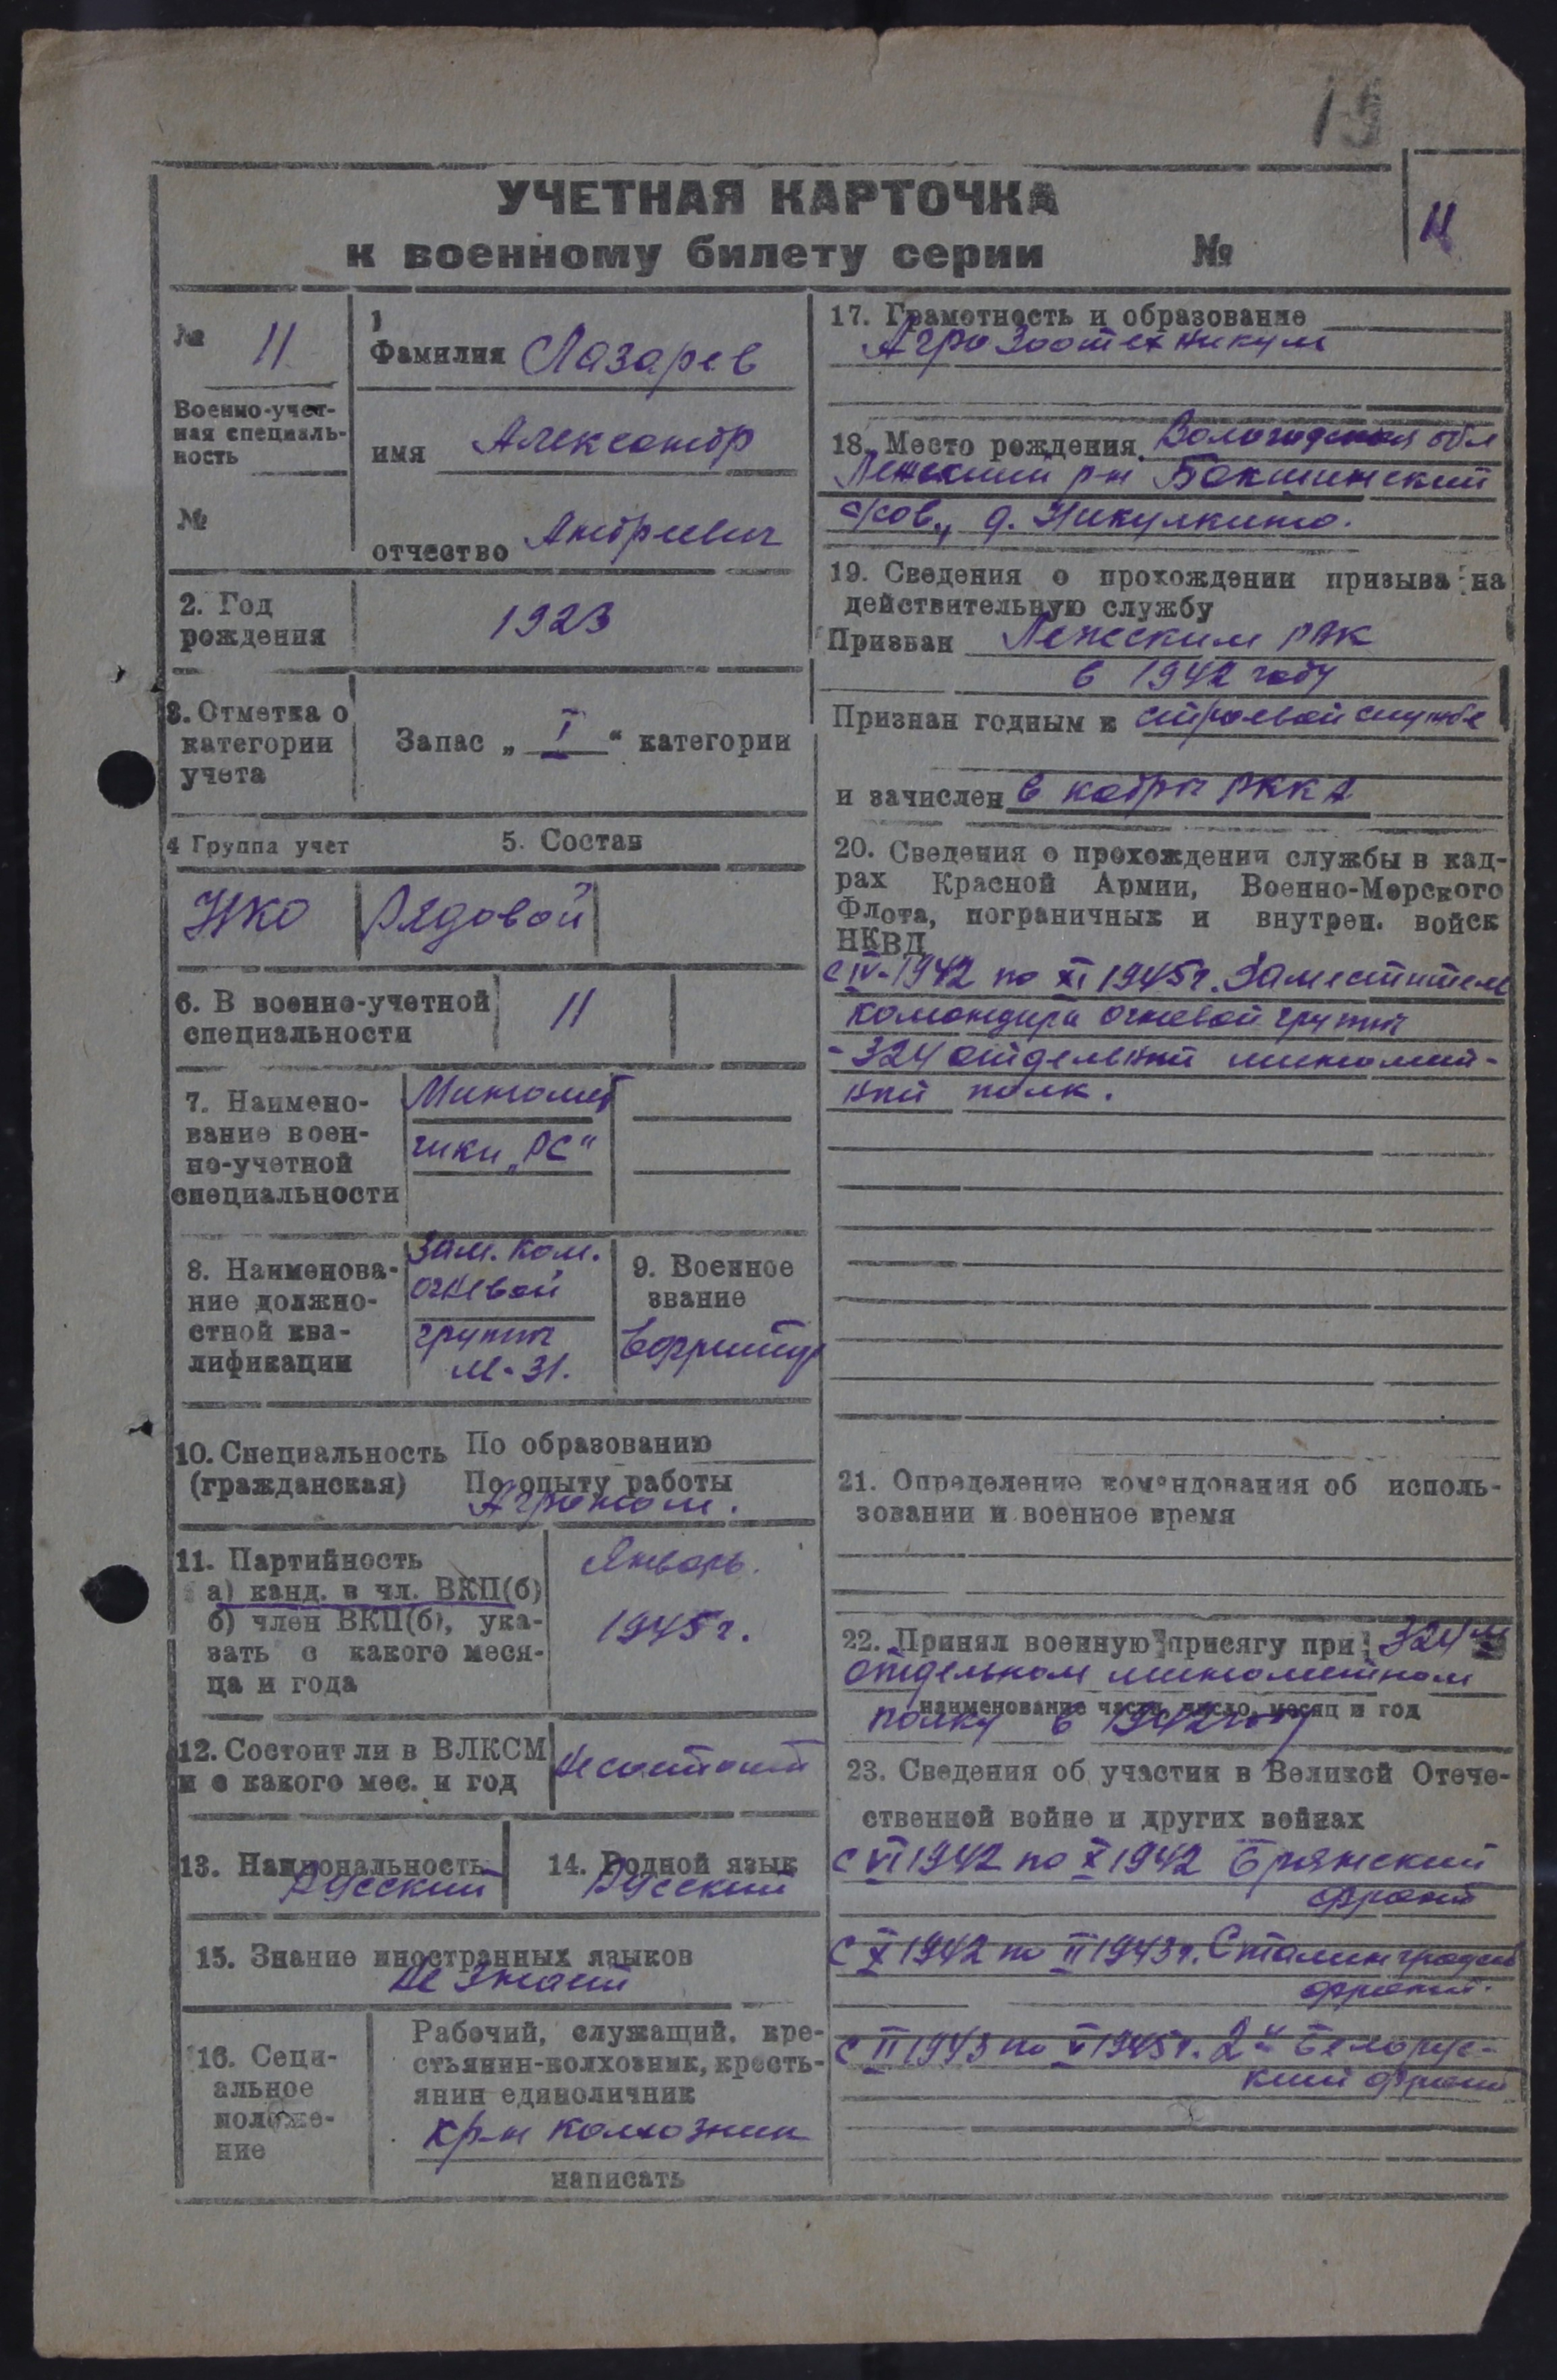 УЧЕТНАЯ КАРТОЧКА
к военному билету серии №
11
№ 11
Военно-учет-
ная специаль-
ность
№
1
Фамилия Лазарев
имя Александр
отчество Андреевич
2. Год
рождения
1923
3. Отметка о
категории
учета
Запас „ I “ категории
4 Группа учет
5. Состав
НКО
Рядовой
6. В военно-учетной
специальности
11
7. Наимено-
вание воен-
но-учетной
специальности
Миномет
чики „РС“
8. Наименова-
ние должно-
стной ква-
лификации
Зам. Ком.
огневой
группы
М-31.
9. Военное
звание
Ефрейтор
10. Специальность
(гражданская)
По образованию
По опыту работы
Агроном.
11. Партийность
а) канд. в чл. ВКП(б)
б) член ВКП(б), ука-
зать с какого меся-
ца и года
Январь.
1945 г.
12. Состоит ли в ВЛКСМ
и с какого мес. и год
Не состоит
13. Национальность
Русский
14. Родной язык
Русский
15. Знание иностранных языков
Не знает
16. Соци-
альное
положе-
ние
Рабочий, служащий, кре-
стьянин-колхозник, кресть-
янин единоличник
кр-н колхозник
написать
17. Грамотность и образование
Агро Зоотехникум
18. Место рождения Вологодская обл
Лежский р-н Бакшинский
с/сов., д. Никулкино.
19. Сведения о прохождении призыва на
действительную службу
Призван Лежским РВК
в 1942 году
Признан годным к строевой службе
и зачислен в кадры РККА
20. Сведения о прохождении службы в кад-
рах Красной Армии, Военно-Морского
Флота, пограничных и внутрен. войск
НКВД
с IV-1942 по XI 1945 г. Заместитель
командира огневой группы
- 324 отдельный миномет-
ный полк.
21. Определение командования об исполь-
зовании в военное время
22. Принял военную присягу при 324 м
отдельном минометном
наименование части, число, месяц и год
полку в 1942 году
23. Сведения об участии в Великой Отече-
ственной войне и других войнах
с VI 1942 по X 1942 Брянский
фронт
с X 1942 по II 1943 г. Сталинградский
фронт.
с II 1943 по V 1945 г. 2й Белорус-
кий фронт